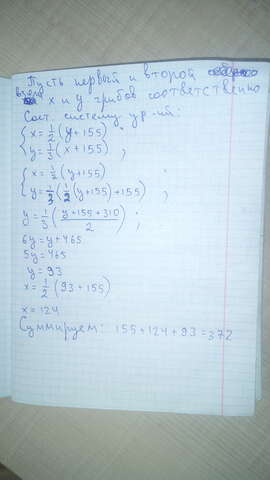 Пусть первый и второй
взяли x и y грибов соответственно
Сост. систему ур-ий:
{ x = 1/2 (y+155)
{ y = 1/3 (x+155) ;
{ x = 1/2 (y+155) ;
{ y = 1/3 (1/2 (y+155)+155) ;
y = 1/3 ( (y+155+310)/2 ) ;
6y = y+465
5y = 465
y = 93
x = 1/2 (93+155)
x = 124
Суммируем: 155+124+93=372